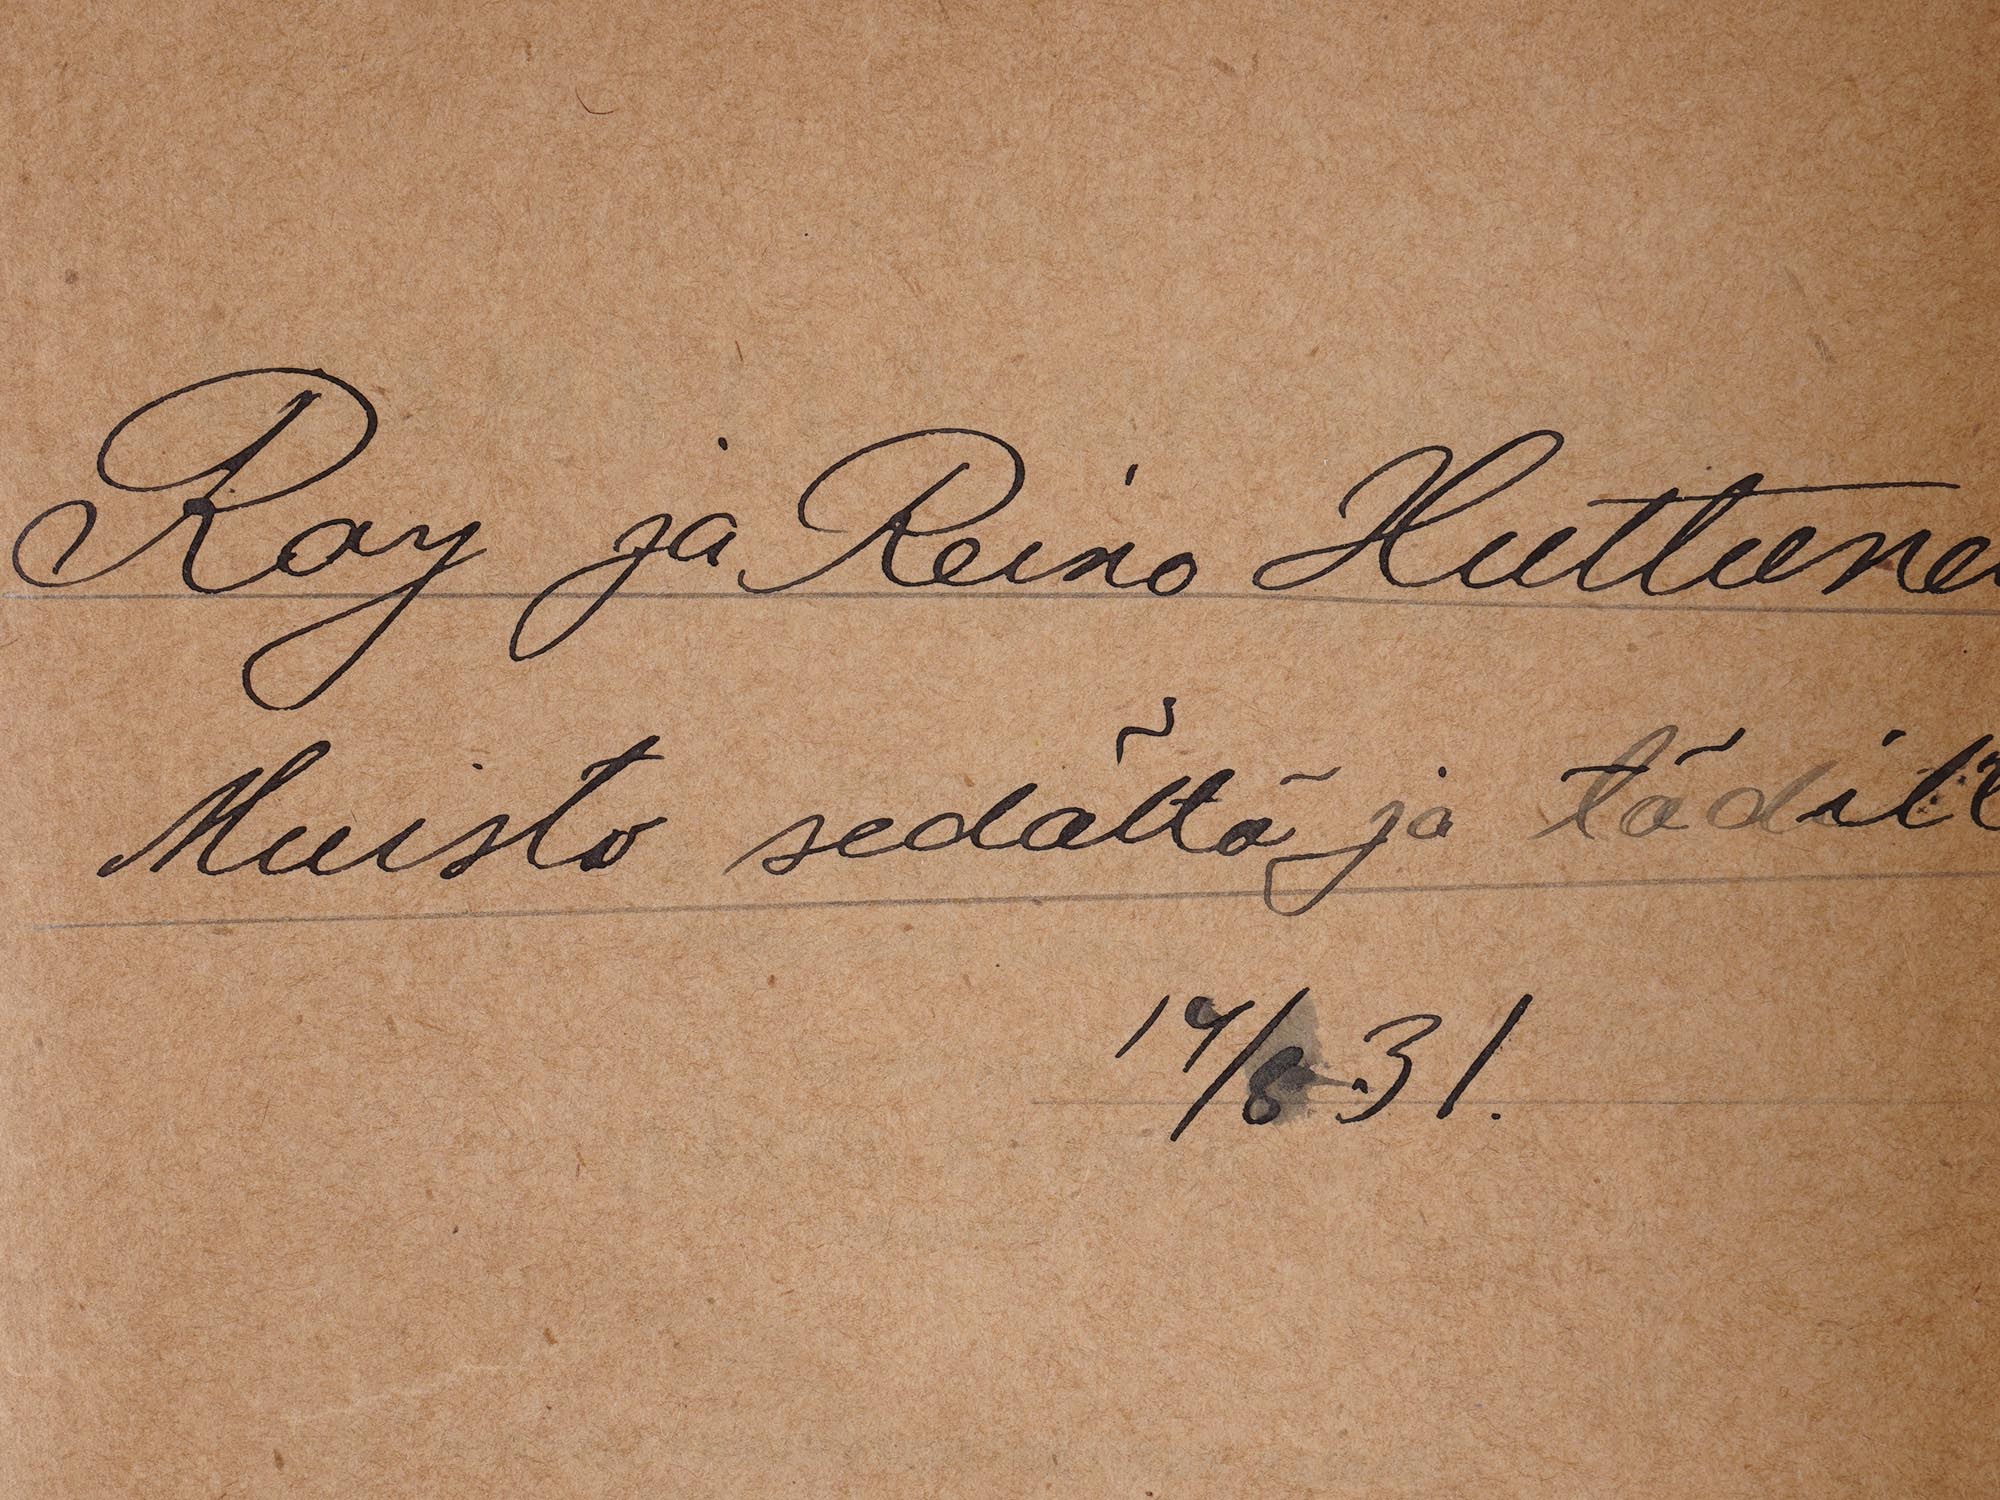 Ray ja Reino Huttune
Muisto sedältä ja tädilt
14/8.31.